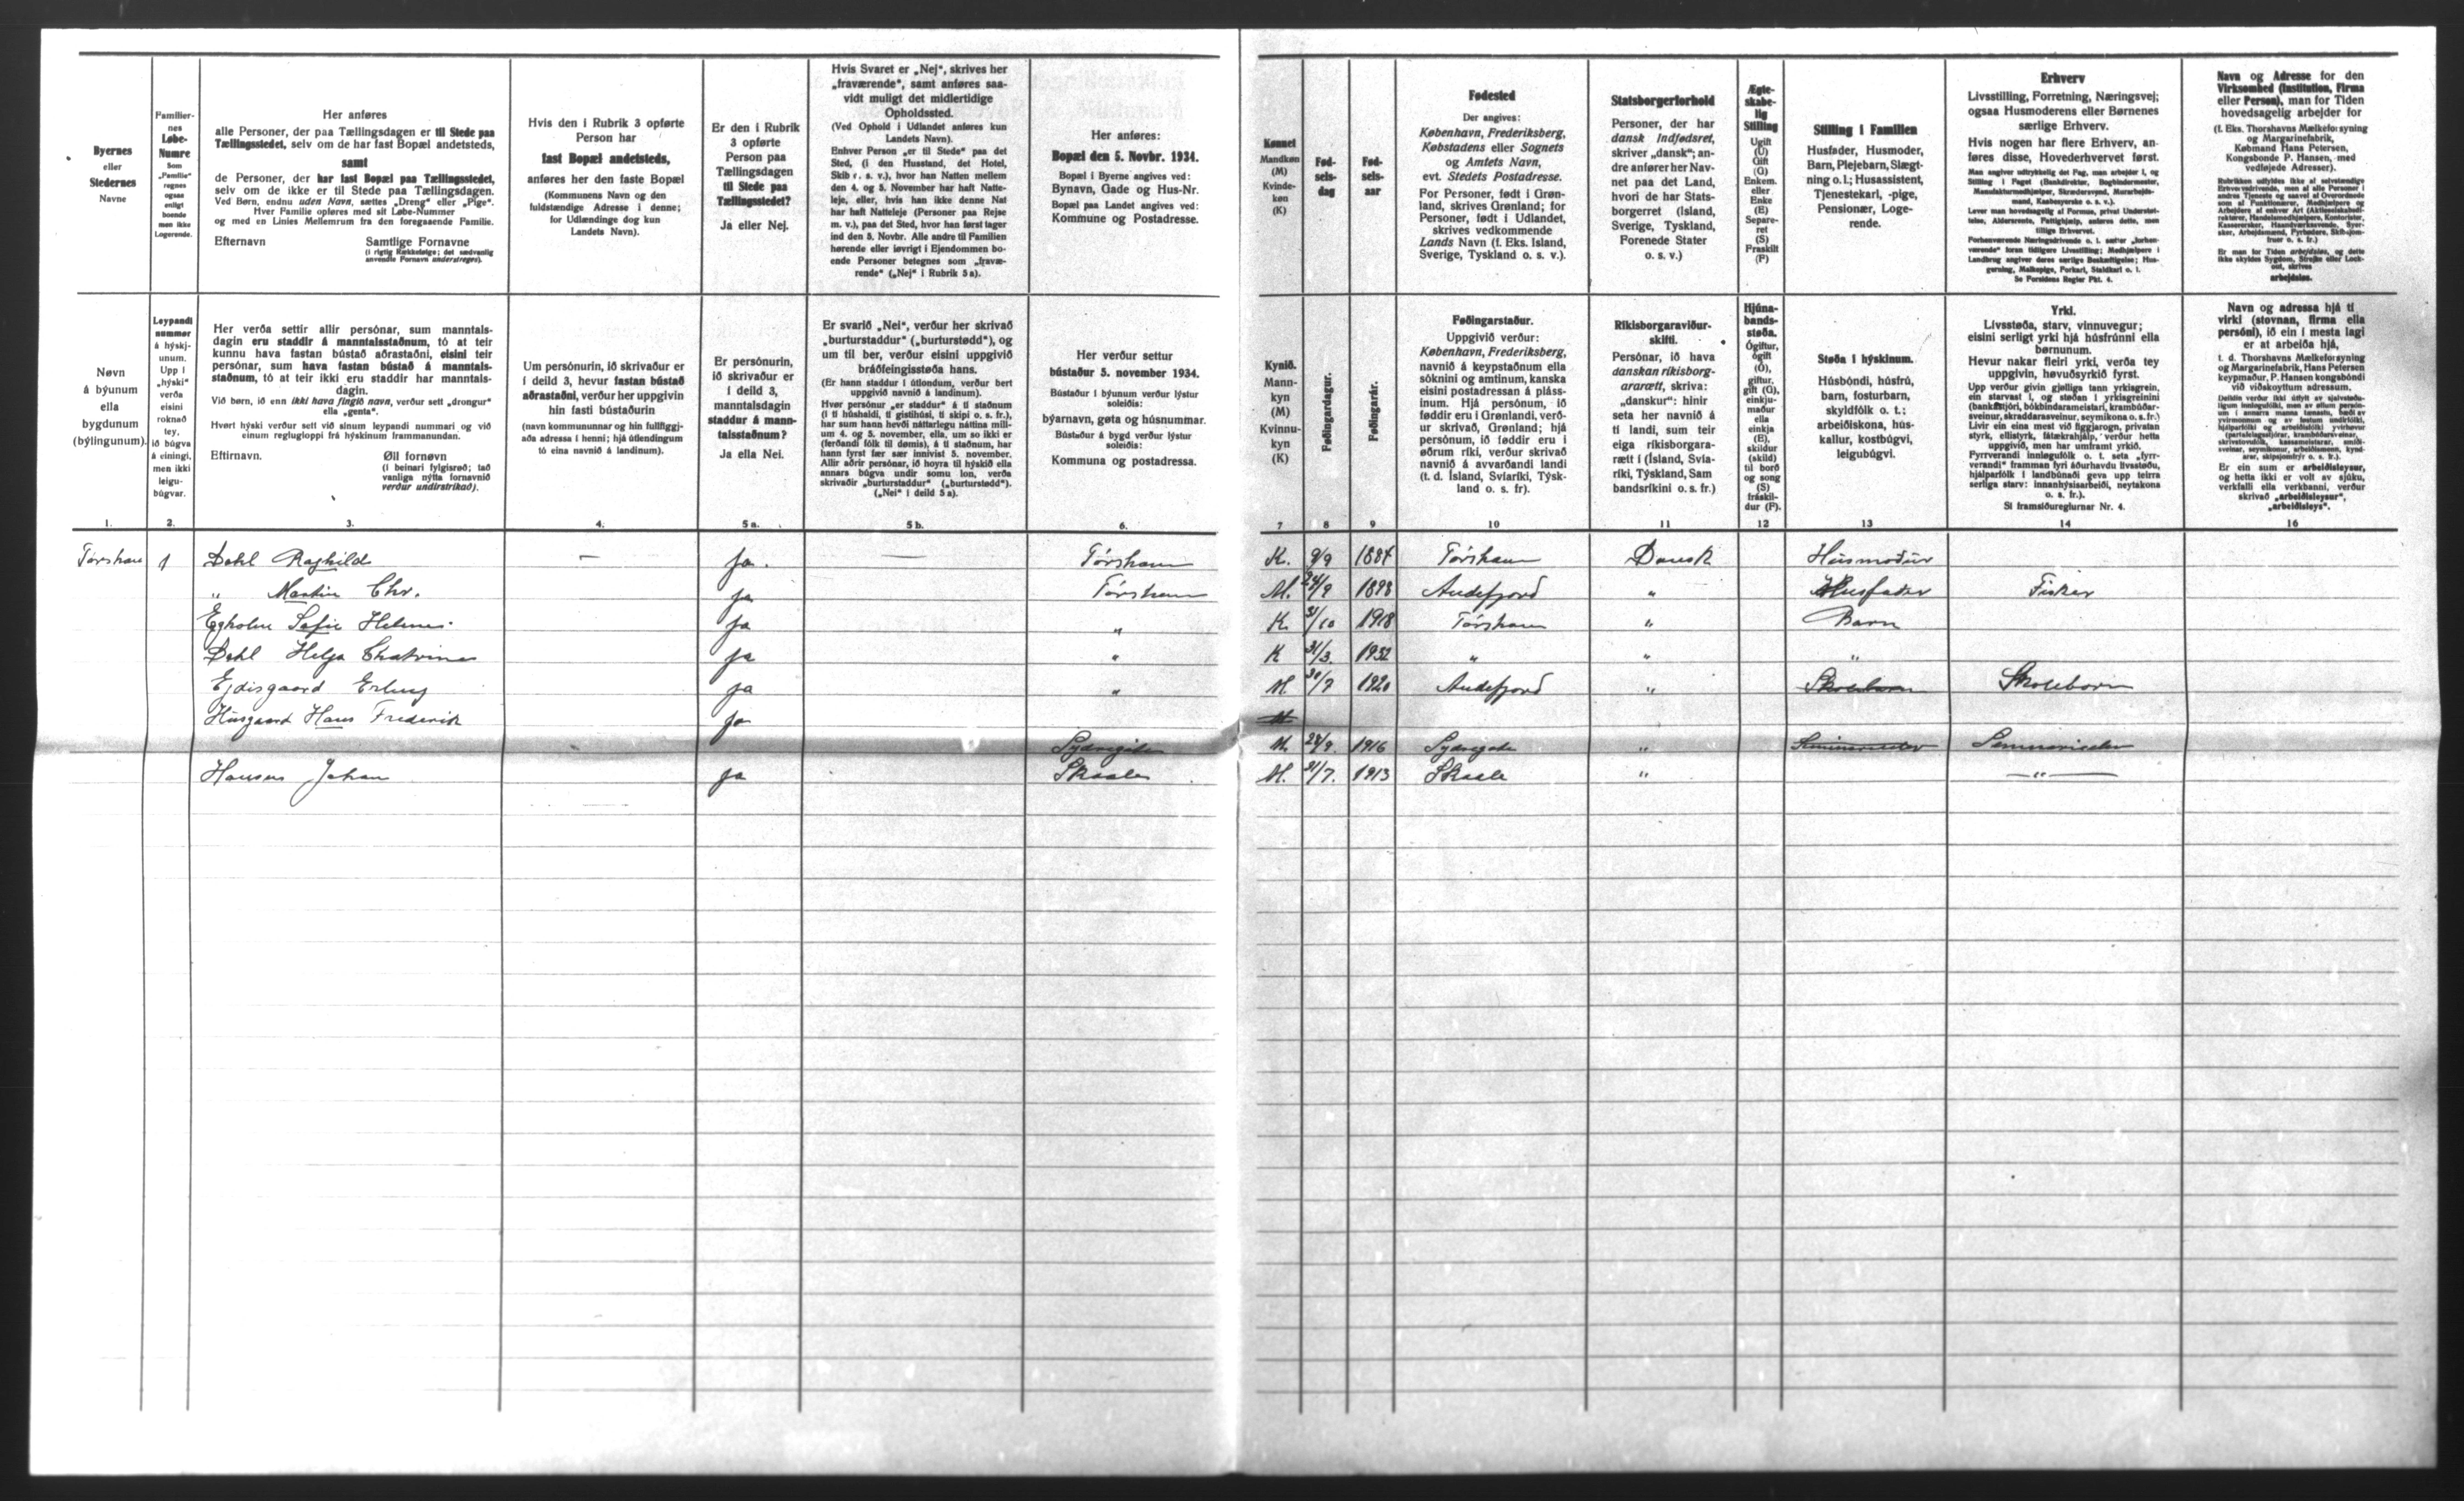 Byernes
eller
Stedernes
Navne
Familier-
nes
Løbe-
Numre
Som
„Familie"
regnes
ogsaa
enligt
boende
men ikke
Logerende.
Her anføres
alle Personer, der paa Tællingsdagen er til Stede paa
Tællingsstedet, selv om de har fast Bopæl andetsteds,
samt
de Personer, der har fast Bopæl paa Tællingsstedet,
selv om de ikke er til Stede paa Tællingsdagen.
Ved Børn, endnu uden Navn, sættes „Dreng" eller „Pige".
Hver Familie opføres med sit Løbe-Nummer
og med en Linies Mellemrum fra den foregaaende Familie.
Efternavn Samtlige Fornavne
(i rigtig Rækkefølge; det sædvanlig
anvendte Fornavn understreges).
Hvis den i Rubrik 3 opførte
Person har
fast Bopæl andetsteds,
anføres her den faste Bopæl
(Kommunens Navn og den
fuldstændige Adresse i denne;
for Udlændinge dog kun
Landets Navn).
Er den i Rubrik
3 opførte
Person paa
Tællingsdagen
til Stede paa
Tællingsstedet?
Ja eller Nej.
Hvis Svaret er „Nej", skrives her
„fraværende", samt anføres saa-
vidt muligt det midlertidige
Opholdssted.
(Ved Ophold i Udlandet anføres kun
Landets Navn).
Enhver Person „er til Stede" paa det
Sted, (i den Husstand, det Hotel,
Skib o. s. v.), hvor han Natten mellem
den 4. og 5. November har haft Natte-
leje, eller, hvis han ikke denne Nat
har haft Natteleje (Personer paa Rejse
m. v.), paa det Sted, hvor han først tager
ind den 5. Novbr. Alle andre til Familien
hørende eller iøvrigt i Ejendommen bo-
ende Personer betegnes som „fravæ-
rende" („Nej" i Rubrik 5 a).
Her anføres:
Bopæl den 5. Novbr. 1934.
Bopæl i Byerne angives ved:
Bynavn, Gade og Hus-Nr.
Bopæl paa Landet angives ved:
Kommune og Postadresse.
Kønnet
Mandkøn
(M)
Kvinde-
køn
(K)
Fød-
sels-
dag
Fød-
sels-
aar
Fødested
Der angives:
København, Frederiksberg,
Købstadens eller Sognets
og Amtets Navn,
evt. Stedets Postadresse.
For Personer, født i Grøn-
land, skrives Grønland; for
Personer, født i Udlandet,
skrives vedkommende
Lands Navn (f. Eks. Island,
Sverige, Tyskland o. s. v.).
Statsborgerforhold
Personer, der har
dansk Indfødsret,
skriver „dansk"; an-
dre anfører her Nav-
net paa det Land,
hvori de har Stats-
borgerret (Island,
Sverige, Tyskland,
Forenede Stater
o. s. v.)
Ægte-
skabe-
lig
Stilling
Ugift
(U)
Gift
(G)
Enkem.
eller
Enke
(E)
Separe-
ret
(S)
Fraskilt
(F)
Stilling i Familien
Husfader, Husmoder,
Barn, Plejebarn, Slægt-
ning o. l.; Husassistent,
Tjenestekarl, -pige,
Pensionær, Loge-
rende.
Erhverv
Livsstilling, Forretning, Næringsvej;
ogsaa Husmoderens eller Børnenes
særlige Erhverv.
Hvis nogen har flere Erhverv, an-
føres disse, Hovederhvervet først.
Se Forsidens Regler Pkt. 4.
Navn og Adresse for den
Virksomhed (Institution, Firma
eller Person), man for Tiden
hovedsagelig arbejder for
(f. Eks. Thorshavns Mælkeforsyning
og Margarinefabrik,
Købmand Hans Petersen,
Kongsbonde P. Hansen, med
vedføjede Adresser).
Er man for Tiden arbejdsløs, og dette
ikke skyldes Sygdom, Strejke eller Lock-
out, skrives
arbejdsløs.
Nøvn
á býunum
ella
bygdunum
(býlingunum).
Leypandi
nummør
á hýski-
unum.
Upp í
„hýski"
verða
eisini
roknað
tey,
ið búgva
á einingi,
men ikki
leigu-
búgvar.
Her verða settir allir persónar, sum manntals-
dagin eru staddir á manntalsstaðnum, tó at teir
kunnu hava fastan bústað aðrastaðni, eisini teir
persónar, sum hava fastan bústað á manntals-
staðnum, tó at teir ikki eru staddir har manntals-
dagin.
Við børn, ið enn ikki hava fingið navn, verður sett „drongur"
ella „genta".
Hvørt hýski verður sett við sínum leypandi nummari og við
einum reglugloppi frá hýskinum frammanundan.
Eftirnavn. Øll fornøvn
(í beinari fylgisrøð; tað
vanliga nýtta fornavnið
verður undirstrikað).
Um persónurin, ið skrivaður er
í deild 3, hevur fastan bústað
aðrastaðni, verður her uppgivin
hin fasti bústaðurin
(navn kommununnar og hin fullfiggj-
aða adressa í henni; hjá útlendingum
tó eina navnið á landinum).
Er persónurin,
ið skrivaður er
í deild 3,
manntalsdagin
staddur á mann-
talsstaðnum?
Ja ella Nei.
Er svarið „Nei", verður her skrivað
„burturstaddur" („burturstødd"), og
um til ber, verður eisini uppgivið
bráðfeingisstøða hans.
(Er hann staddur í útlondum, verður bert
uppgivið navnið á landinum).
Hvør persónur „er staddur" á tí staðnum
(í tí húshaldi, tí gistihúsi, tí skipi o. s. fr.),
har sum hann hevði náttarlegu náttina mill-
um 4. og 5. november, ella, um so ikki er
(ferðandi fólk til dømis), á tí staðnum, har
hann fyrst fær sær innivist 5. november.
Allir aðrir persónar, ið hoyra til hýskið ella
annars búgva undir somu lon, verða
skrivaðir „burturstaddur" („burturstødd").
(„Nei" í deild 5 a).
Her verður settur
bústaður 5. november 1934.
Bústaður í býunum verður lýstur
soleiðis:
býarnavn, gøta og húsnummar.
Bústaður á bygd verður lýstur
soleiðis:
Kommuna og postadressa.
Kynið.
Mann-
kyn
(M)
Kvinnu-
kyn
(K)
Føðingardagur.
Føðingarár.
Føðingarstaður.
Uppgivið verður:
København, Frederiksberg,
navnið á keypstaðnum ella
sóknini og amtinum, kanska
eisini postadressan á pláss-
inum. Hjá persónum, ið
føddir eru í Grønlandi, verð-
ur skrivað, Grønland; hjá
persónum, ið føddir eru í
øðrum ríki, verður skrivað
navnið á avvarðandi landi
(t. d. Ísland, Svíaríki, Týsk-
land o. s. fr).
Ríkisborgaraviður-
skifti.
Persónar, ið hava
danskan ríkisborg-
ararætt, skriva:
„danskur": hinir
seta her navnið á
tí landi, sum teir
eiga ríkisborgara-
rætt í (Ísland, Svía-
ríki, Týskland, Sam
bandsríkini o. s. fr.)
Hjúna-
bands-
støða.
Ógiftur,
ógift
(Ó),
giftur,
gift (G),
einkju-
maður
ella
einkja
(E),
skildur
(skild)
til borð
og song
(S)
fráskil-
dur (F).
Støða í hýskinum.
Húsbóndi, húsfrú,
barn, fosturbarn,
skyldfólk o. t.;
arbeiðiskona, hús-
kallur, kostbúgvi,
leigubúgvi.
Yrki.
Lívsstøða, starv, vinnuvegur;
eisini serligt yrki hjá húsfrúnni ella
børnunum.
Hevur nakar fleiri yrki, verða tey
uppgivin, høvuðsyrkið fyrst.
Sí framsíðureglurnar Nr. 4.
Navn og adressa hjá tí
virki (stovnan, firma ella
persóni), ið ein í mesta lagi
er at arbeiða hjá,
t. d. Thorshavns Mælkeforsyning
og Margarinefabrik, Hans Petersen
keypmaður, P. Hansen kongsbóndi
við viðskoyttum adressum.
Er ein sum er arbeiðisleysur,
og hetta ikki er volt av sjúku,
verkfalli ella verkbanni, verður
skrivað „arbeiðisleysur",
„arbeiðisleys".
1. 2. 3. 4. 5 a. 5 b. 6. 7 8 9 10 11 12 13 14 16
Tórshavn 1 Dahl Raghild — Ja. — Tórshavn K. 9/9 1884 Tórshavn Dansk Húsmoður
„ Martin Chr. Ja Tórshavn M. 24/9 1898 Andefjord „ Husfader Fisker
Egholm Sofie Helene. Ja „ K. 31/10 1918 Tórshavn „ Barn
Dahl Helga Chatrina Ja „ K 31/3. 1932 „ „ „
Ejdisgaard Erling Ja „ M 30/7 1920 Andefjord „ Skolebarn Skolebarn
Húsgaard Hans Frederik Ja M
Sydregøta M. 28/9. 1916 Sydregøta „ Seminarieelev Seminarieelev
Hansen Johan Ja Skaale M. 31/7. 1913 Skaale „ —„—